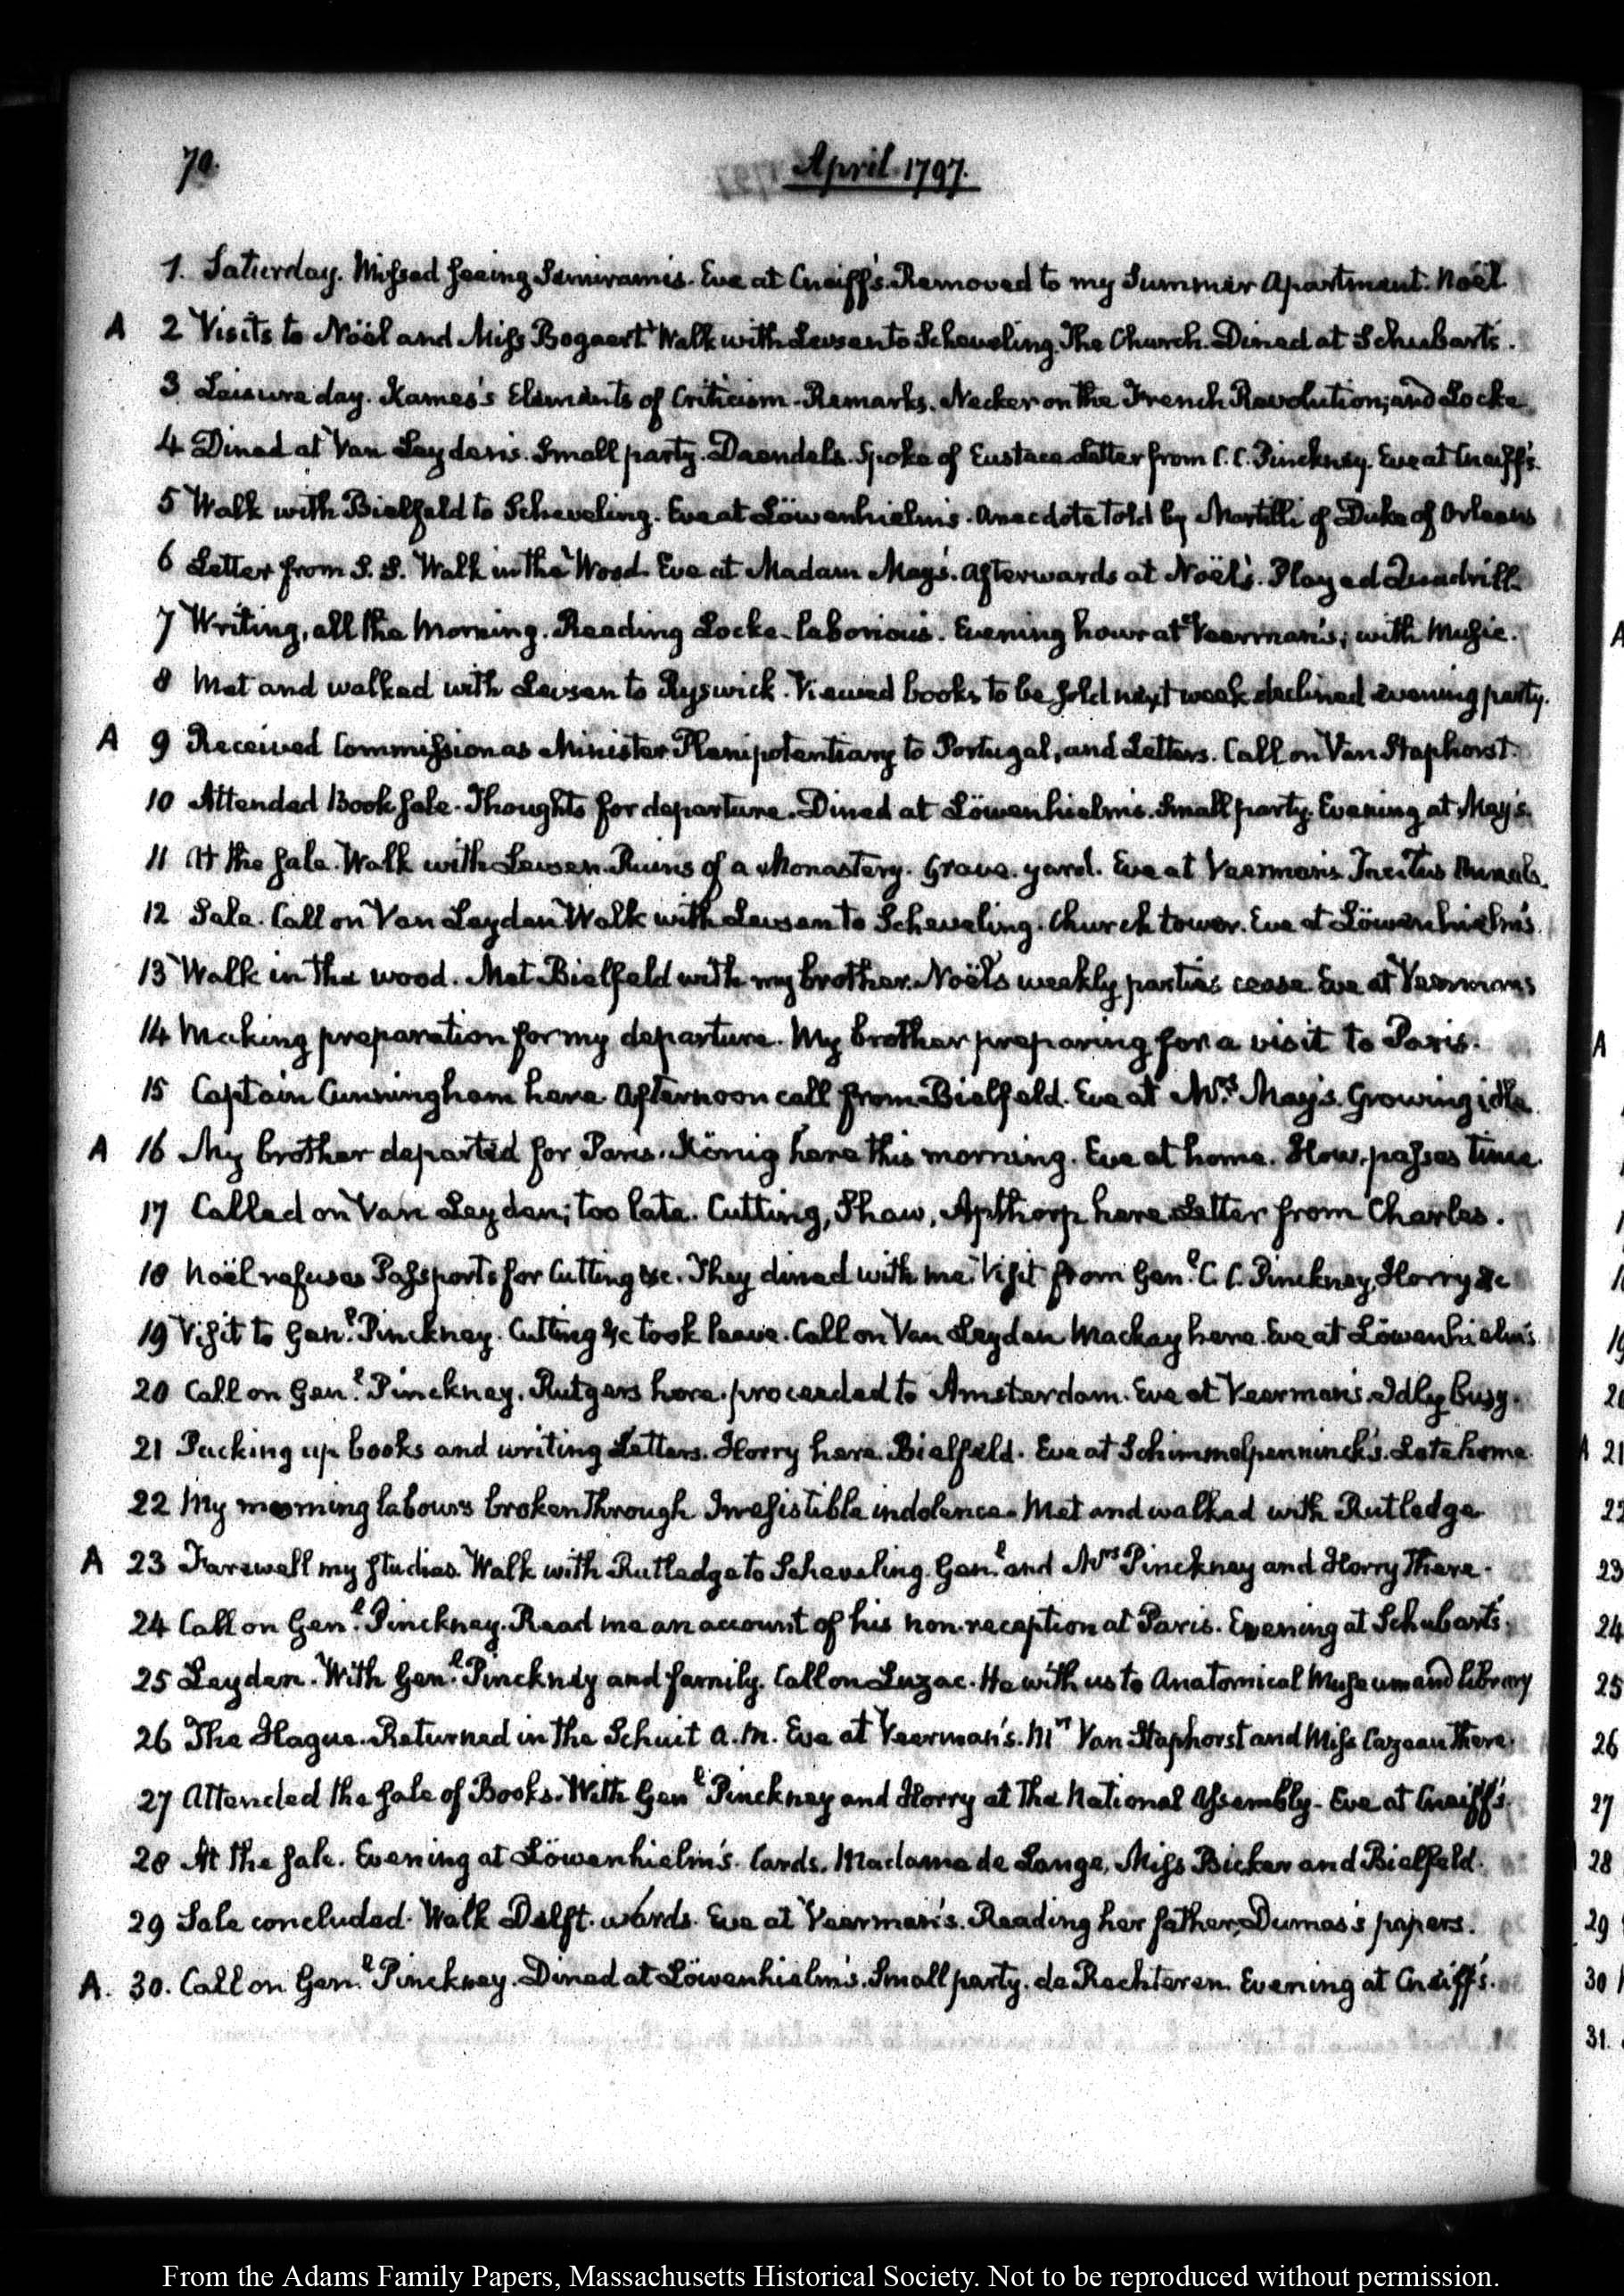 70.
April. 1797.
1. Saturday. Missed seeing Semiramis. Eve at Cneiff's. Removed to my Summer Apartment. Noël.
A 2 Visits to Nöel and Miss Bogaert. Walk with Levsen to Scheveling. The Church. Dined at Schubart's.
3 Leisure day. Kames's Elements of Criticism. Remarks. Necker on the French Revolution; and Locke
4 Dined at Van Leyden's. Small party. Daendels. Spoke of Eustace. Letter from C. C. Pinckney. Eve at Cneiff's.
5 Walk with Bielfeld to Scheveling. Eve at Löwenhielm's. Anecdote told by Martilli of Duke of Orleans
6 Letter from S. S. Walk in the Wood. Eve at Madam May's. Afterwards at Noël's. Played Quadrill.
7 Writing, all the Morning. Reading Locke laborious. Evening hour at Veerman's; with Music.
8 Met and walked with Levsen to Ryswick. Viewed books to be sold next week declined evening party.
A 9 Received Commission as Minister Plenipotentiary to Portugal, and Letters. Call on Van Staphorst.
10 Attended Book sale. Thoughts for departure. Dined at Löwenhielm's. Small party. Evening at May's.
11 At the sale. Walk with Levsen. Ruins of a Monastery. Grave yard. Eve at Veerman's. Tacitus Annals.
12 Sale. Call on Van Leyden. Walk with Levsen to Scheveling. Church tower. Eve at Löwenhielm's.
13 Walk in the wood. Met Bielfeld with my brother. Noël's weekly parties cease. Eve at Veermans
14 Making preparation for my departure. My brother preparing for a visit to Paris.
15 Captain Cunningham here. Afternoon call from Bielfeld. Eve at Mrs. May's. Growing idle.
A 16 My brother departed for Paris. König here this morning. Eve at home. How passes time.
17 Called on Van Leyden; too late. Cutting, Shaw, Apthorp here. Letter from Charles.
18 Noël refuses Passports for Cutting &c. They dined with me. Visit from Genl. C. C. Pinckney, Horry &c
19 Visit to Genl. Pinckney. Cutting &c took leave. Call on Van Leyden. Mackay here. Eve at Löwenhielm's.
20 Call on Genl. Pinckney. Rutgers here. proceeded to Amsterdam. Eve at Veerman's. Idly busy.
21 Packing up books and writing Letters. Horry here. Bielfeld. Eve at Schimmelpenninck's. Late home.
22 My morning labours broken through. Irresistible indolence. Met and walked with Rutledge
A 23 Farewell my studies. Walk with Rutledge to Scheveling. Genl. and Mrs Pinckney and Horry there.
24 Call on Genl. Pinckney. Read me an account of his non-reception at Paris. Evening at Schubart's.
25 Leyden. With Genl. Pinckney and family. Call on Luzac. He with us to Anatomical Museum and library
26 The Hague. Returned in the Schuit A.M. Eve at Veerman's. Mrs Van Staphorst and Miss Cazeau there.
27 Attended the sale of Books. With Genl Pinckney and Horry at the National Assembly. Eve at Cneiff's.
28 At the sale. Evening at Löwenhielm's. Cards. Madame de Lange, Miss Bicker and Bielfeld.
29 Sale concluded. Walk Delft-wards. Eve at Veerman's. Reading her father, Dumas's papers.
A. 30. Call on Genl. Pinckney. Dined at Löwenhielm's. Small party. de Rechteren. Evening at Cneiff's.
From the Adams Family Papers, Massachusetts Historical Society. Not to be reproduced without permission.